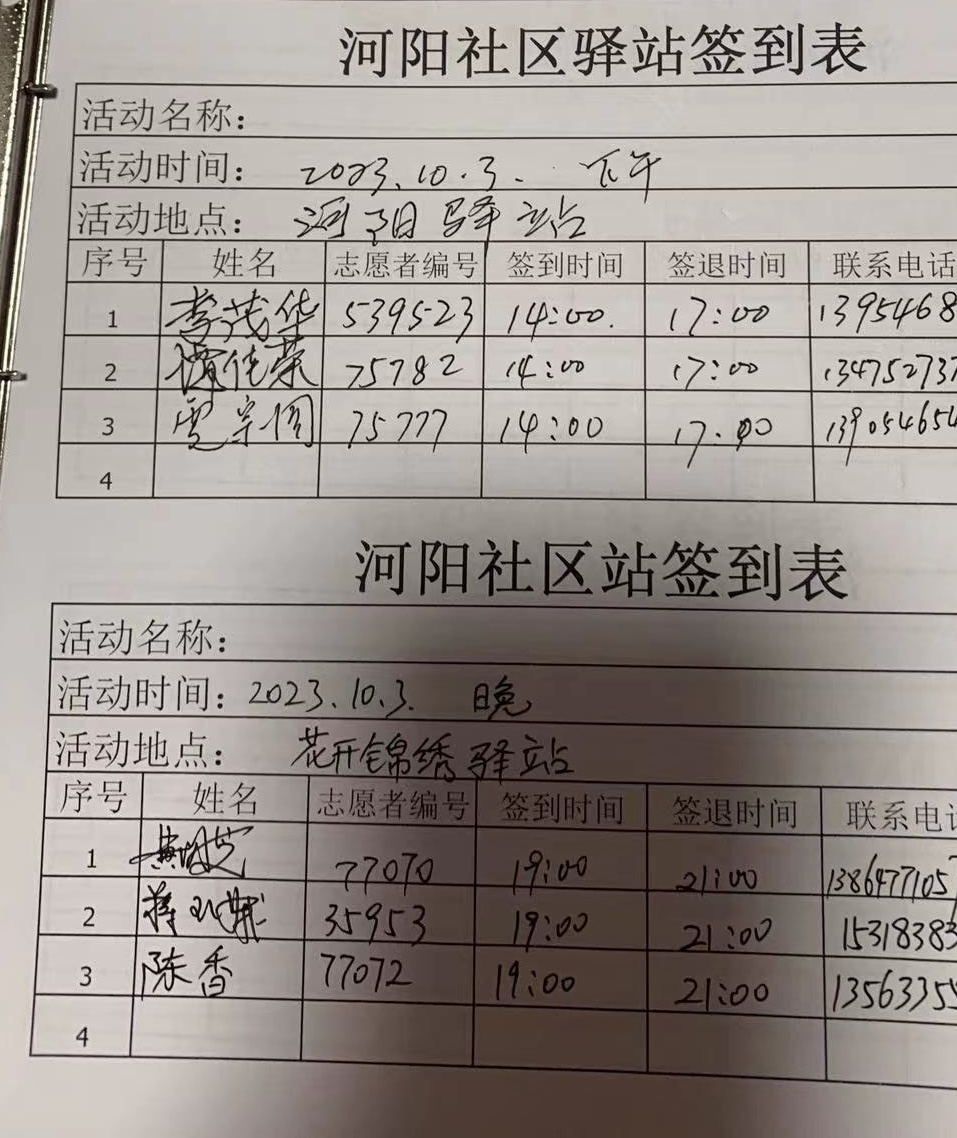 河阳社区驿站签到表
活动名称：
活动时间： 2023.10.3. 下午
活动地点： 河阳驿站
序号 姓名 志愿者编号 签到时间 签退时间 联系电话
1 李茂华 539523 14:00. 17:00 1395468
2 佳荣 75782 14:00 17:00 134752737
3 宗 75777 14:00 17:00 139054654
4
河阳社区站签到表
活动名称：
活动时间：2023.10.3. 晚
活动地点： 花开锦绣驿站
序号 姓名 志愿者编号 签到时间 签退时间 联系电话
1 黄 77070 19:00 21:00 1386477105
2 蒋 35953 19:00 21:00 15318383
3 陈香 77072 19:00 21:00 13563355
4